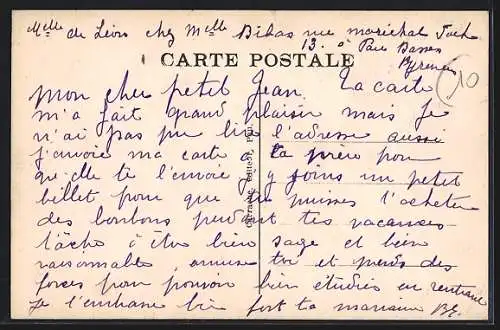 Melle de Léon chez Melle Bibas rue maréchal Foch
13. à Pau Basses
Pyrénées
CARTE POSTALE
10
Mon cher petit Jean. Ta carte
m'a fait grand plaisir mais je
n'ai pas pu lire l'adresse aussi
j'envoie ma carte à ta mère pour
qu'elle te l'envoie. J'y joins un petit
billet pour que tu puisses t'acheter
des bonbons pendant tes vacances
tâche à être bien sage et bien
raisonnable, amuse toi et prends des
forces pour pouvoir bien étudier en rentrant
Je t'embrasse bien fort ta marraine